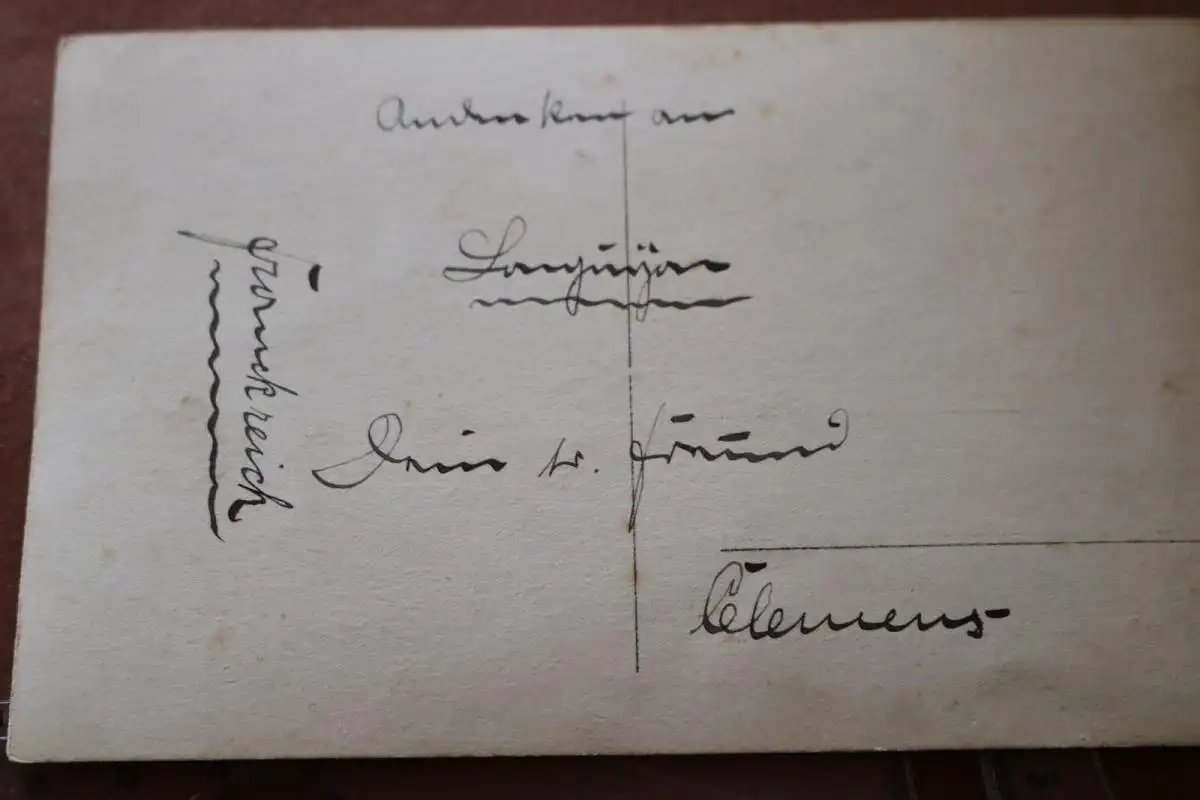 Andenken an
Longuÿon
Dein tr. Freund
Clemens
Frankreich